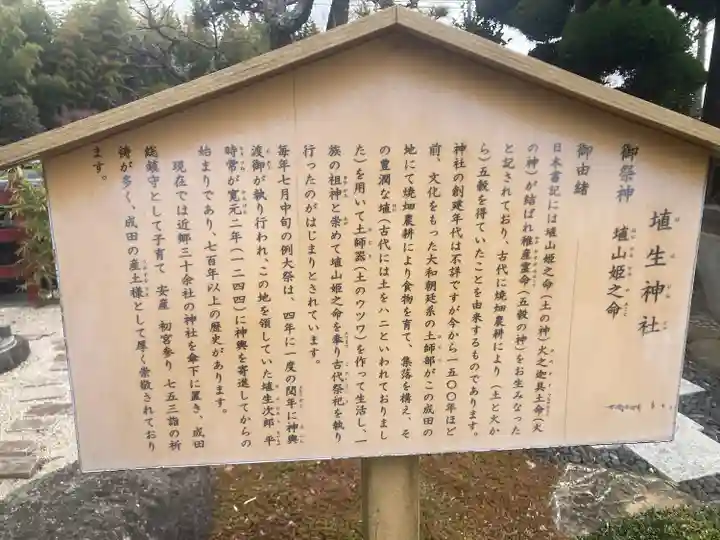 埴生神社
御祭神 埴山姫之命
御由緒
日本書記には埴山姫之命(土の神)火之迦具土命(火
の神)が結ばれ稚産霊命(五穀の神)をお生みなった
と記されており、古代に焼畑農耕により(土と火か
ら)五穀を得ていたことを由来するものであります。
神社の創建年代は不詳ですが今から一五〇〇年ほど
前、文化をもった大和朝廷系の土師部がこの成田の
地にて焼畑農耕により食物を育て、集落を構え、そ
の豊潤な埴(古代には土をハニといわれておりまし
た)を用いて土師器(土のウツワ)を作って生活し、一
族の祖神と崇めて埴山姫之命を奉り古代祭祀を執り
行ったのがはじまりとされています。
毎年七月中旬の例大祭は、四年に一度の閏年に神輿
渡御が執り行われ、この地を領していた埴生次郎平
時常が寛元二年(一二四四)に神輿を寄進してからの
始まりであり、七百年以上の歴史があります。
現在では近郷三十余社の神社を傘下に置き、成田
総鎮守として子育て 安産 初宮参り 七五三詣の祈
祷が多く、成田の産土様として厚く崇敬されており
ます。